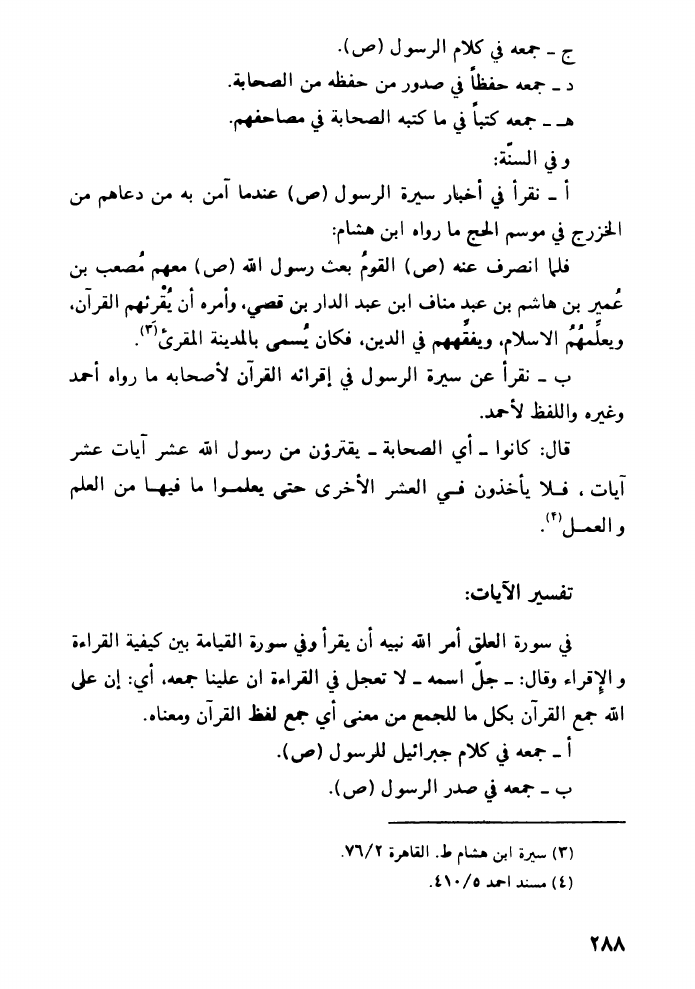 ج ـ جمعه في كلام الرسول (ص).
د ـ جمعه حفظاً في صدور من حفظه من الصحابة.
هـ ـ جمعه كتباً في ما كتبه الصحابة في مصاحفهم.
و في السنّة:
أ ـ نقرأ في أخبار سيرة الرسول (ص) عندما آمن به من دعاهم من
الخزرج في موسم الحج ما رواه ابن هشام:
فلما انصرف عنه (ص) القومُ بعث رسول الله (ص) معهم مُصعب بن
عُمير بن هاشم بن عبد مناف ابن عبد الدار بن قصي، وأمره أن يُقْرِئهم القرآن،
ويعلِّمهُمُ الاسلام، ويفقِّههم في الدين، فكان يُسمى بالمدينة المقرئ(٣).
ب ـ نقرأ عن سيرة الرسول في إقرائه القرآن لأصحابه ما رواه أحمد
وغيره واللفظ لأحمد.
قال: كانوا ـ أي الصحابة ـ يقترؤن من رسول الله عشر آيات عشر
آيات ، فـلا يأخذون فـي العشر الأخرى حتى يعلمـوا ما فيهـا من العلم
و العمـل(٤).
تفسير الآيات:
في سورة العلق أمر الله نبيه أن يقرأ وفي سورة القيامة بين كيفية القراءة
و الإقراء وقال: ـ جلّ اسمه ـ لا تعجل في القراءة ان علينا جمعه، أي: إن على
الله جمع القرآن بكل ما للجمع من معنى أي جمع لفظ القرآن ومعناه.
أ ـ جمعه في كلام جبرائيل للرسول (ص).
ب ـ جمعه في صدر الرسول (ص).
(٣) سيرة ابن هشام ط. القاهرة ٧٦/٢.
(٤) مسند احمد ٤١٠/٥.
٢٨٨